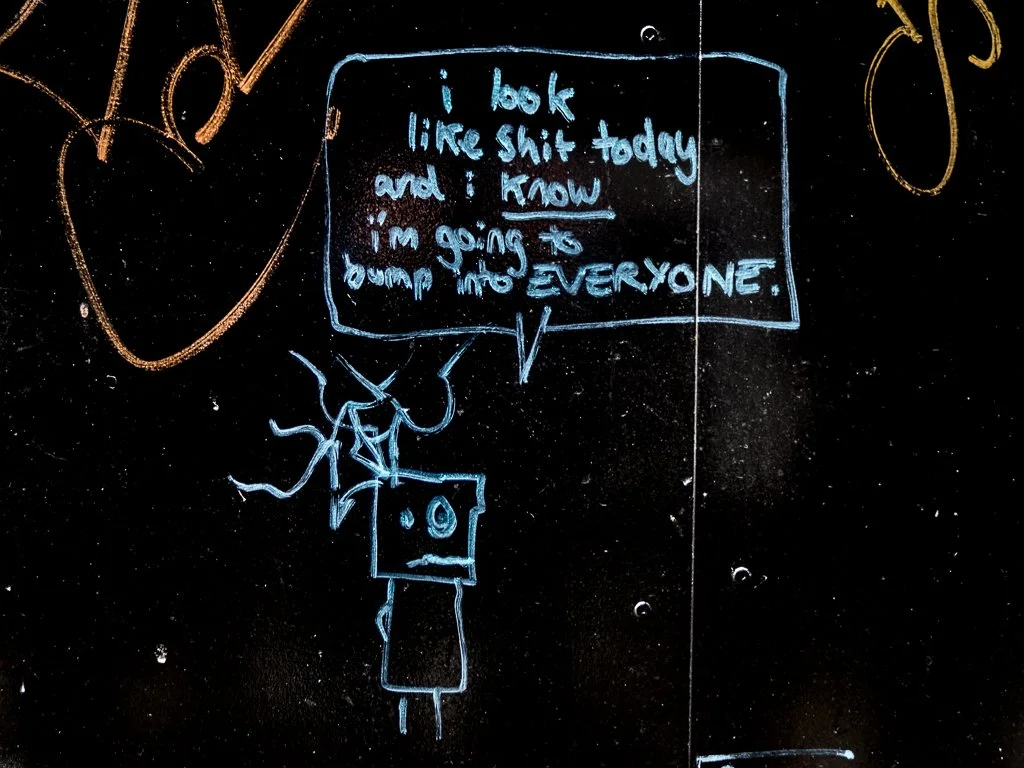 i look
like shit today
and i know
i'm going to
bump into EVERYONE.